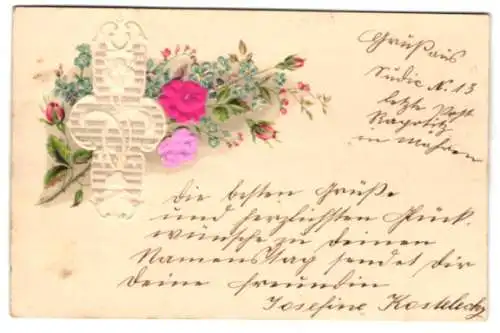 Gruß aus
Sudic N. 13
letzte Post
Raycitz
in Mähren
Die besten Grüße
und herzlichsten Glück
wünsche zu deinen
Namenstag sendet dir
deine Freundin
Josefine Kostelecky